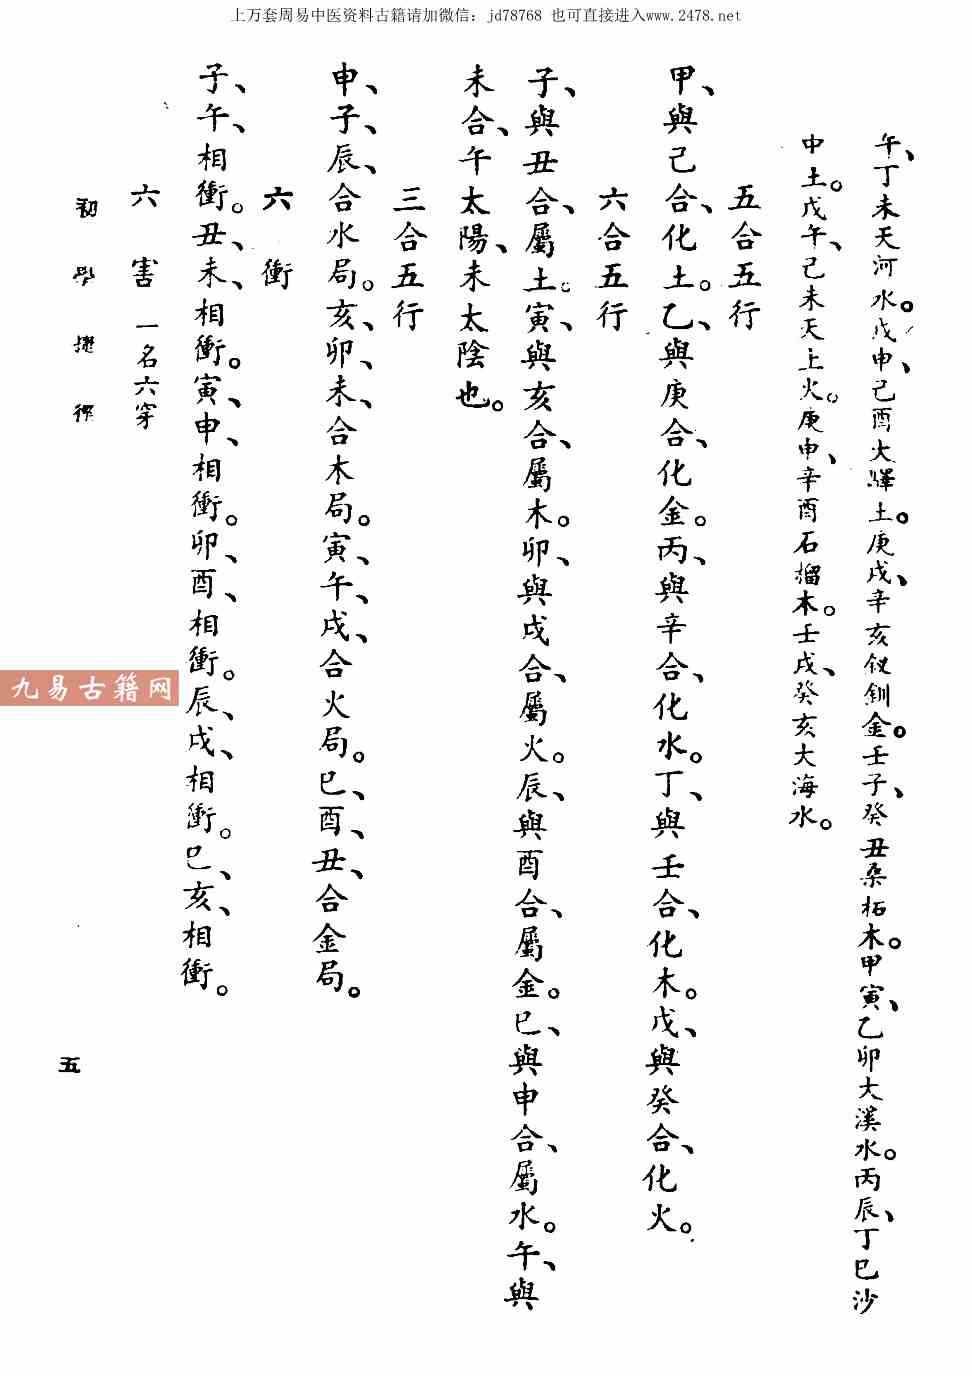 上万套周易中医资料古籍请加微信：jd78768 也可直接进入www.2478.net
午、丁未天河水。戊申、己酉大驛土。庚戌、辛亥釵釧金。壬子、癸丑桑柘木。甲寅、乙卯大溪水。丙辰、丁巳沙
中土。戊午、己未天上火。庚申、辛酉石榴木。壬戌、癸亥大海水。
五合五行
甲、與己合、化土。乙、與庚合、化金。丙、與辛合、化水。丁、與壬合、化木。戊、與癸合、化火。
六合五行
子、與丑合、屬土。寅、與亥合、屬木。卯、與戌合、屬火。辰、與酉合、屬金。巳、與申合、屬水。午、與
未合、午太陽、未太陰也。
三合五行
申、子、辰、合水局。亥、卯、未、合木局。寅、午、戌、合火局。巳、酉、丑、合金局。
六衝
子、午、相衝。丑、未、相衝。寅、申、相衝。卯、酉、相衝。辰、戌、相衝。巳、亥、相衝。
六害 一名六穿
初學捷徑
五
九易古籍网